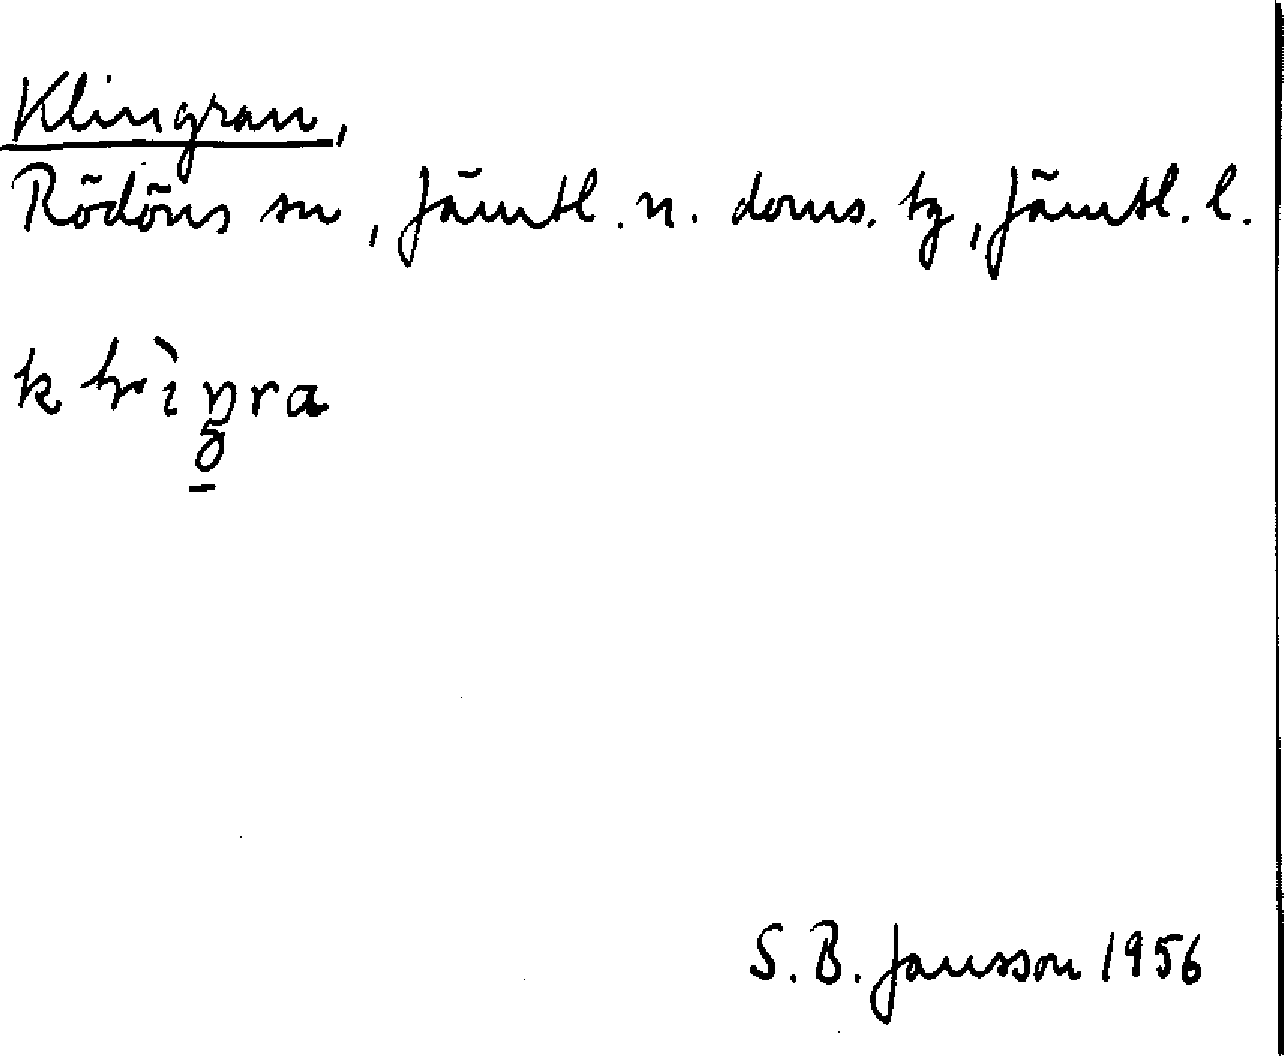 Klingran,
Rödöns sn, Jämtl. n. doms. tg, Jämtl. l.
S. B. Jansson 1956